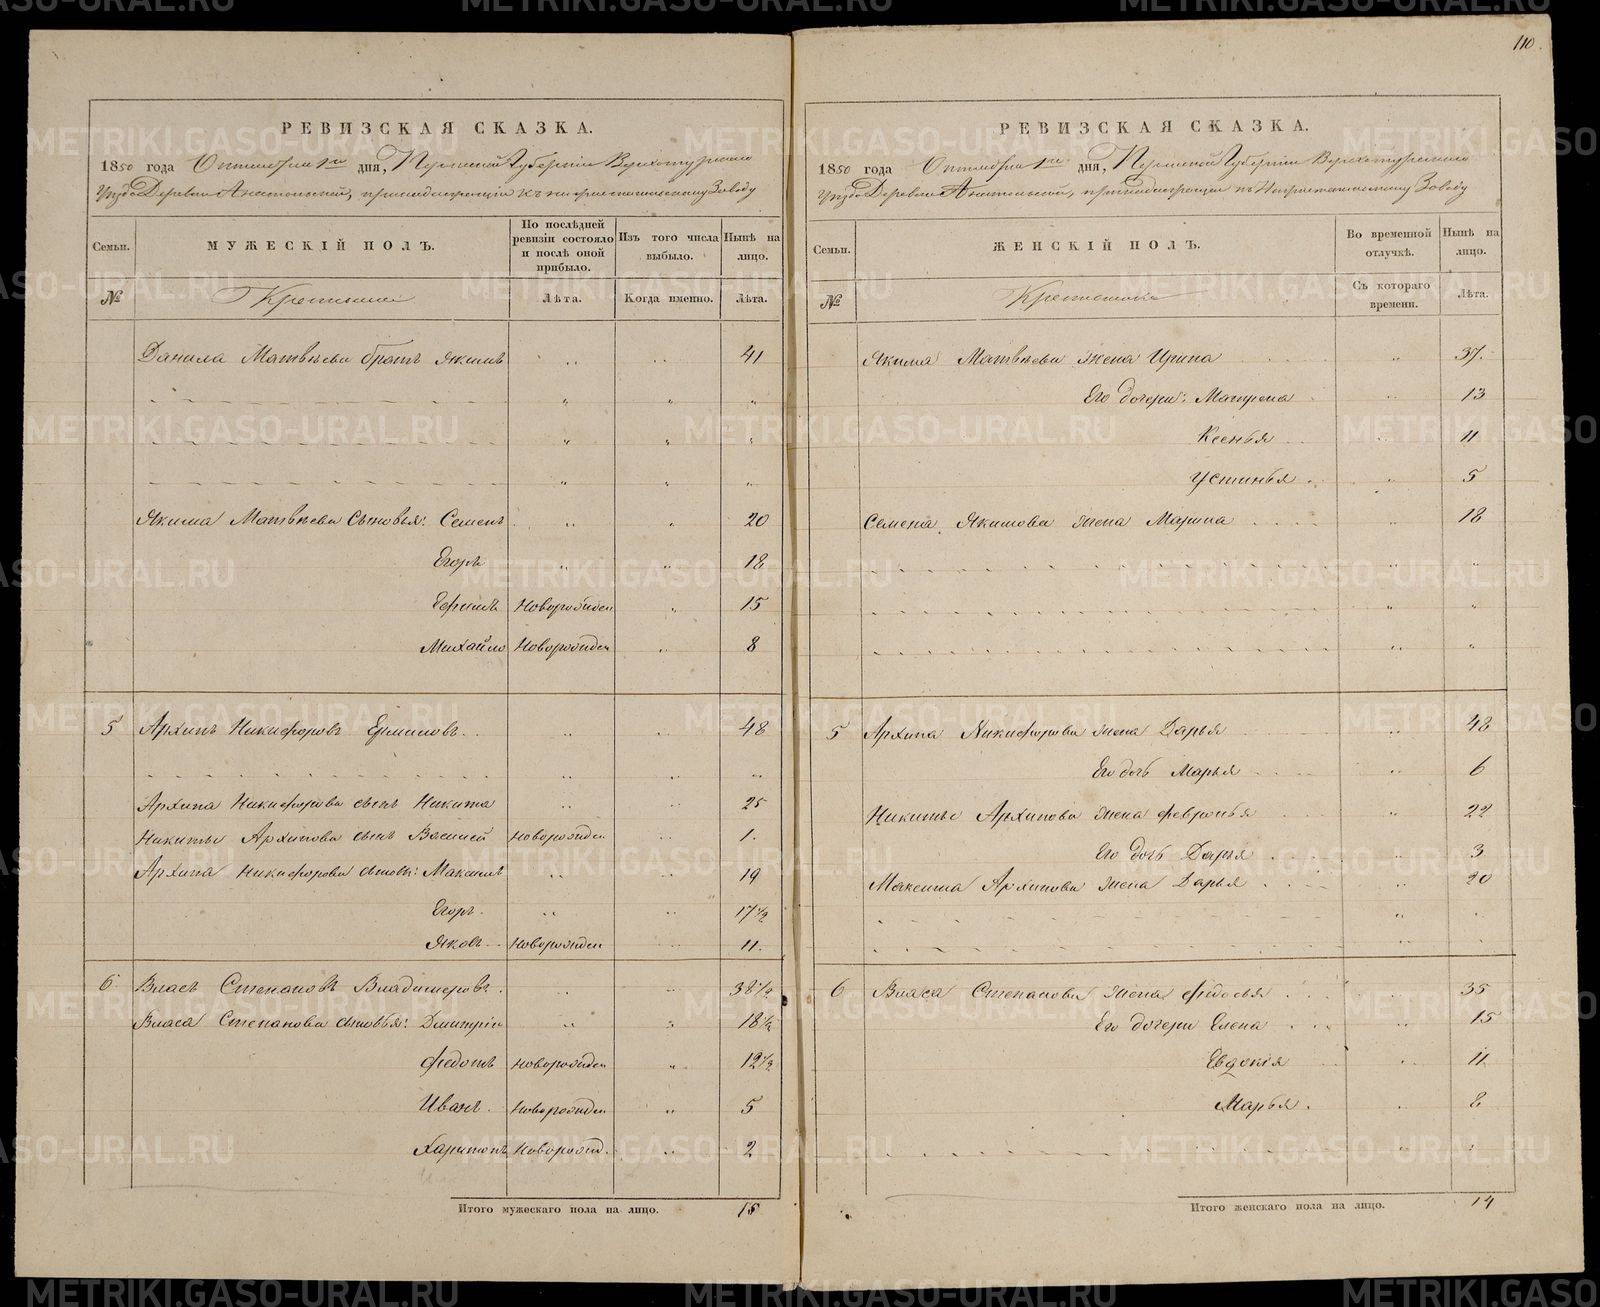 110
РЕВИЗСКАЯ СКАЗКА.
1850 года Октября 1го дня, Пермской Губернии Верхотурскаго
Уезда Деревни Анатольской, принадлежащей къ Заводу
Семьи.
МУЖЕСКІЙ ПОЛЪ.
По послѣдней ревизіи состояло и послѣ оной прибыло.
Изъ того числа выбыло.
Нынѣ на лицо.
№
Крестьяне
Лѣта.
Когда именно.
Лѣта.
Данила Матвѣева братъ Якимъ 41
Якима Матвѣева сыновья: Семенъ 20
Егоръ 18
Ефимъ Новорожден 15
Михайло Новорожден 8
5 Архипъ Никифоровъ Ермиловъ 48
Архипа Никифорова сынъ Никита 25
Никиты Архипова сынъ Василей новорожден 1.
Архипа Никифорова сынов: Максимъ 19
Егоръ. 17 1/2
Яковъ новорожден 11.
6 Власъ Степановъ Владимеровъ 38 1/2
Власа Степанова сыновья: Дмитрій 18 1/2
Федотъ новорожден 12 1/2
Иванъ. новорожден 5
Харитонъ новорожд. 2
Итого мужескаго пола на лицо. 15
РЕВИЗСКАЯ СКАЗКА.
1850 года Октября 1го дня, Пермской Губернии Верхотурскаго
Уезда Деревни Анатольской, принадлежащей къ Заводу
Семьи.
ЖЕНСКІЙ ПОЛЪ.
Во временной отлучкѣ.
Нынѣ на лицо.
№
Съ котораго времени.
Лѣта.
Якима Матвѣева жена Ирина 37.
Его дочери: Матрена 13
Ксенья 11
Устинья 5
Семена Якимова жена Марина 18
5 Архипа Никифорова жена Дарья 48
Его дочь Марья 6
Никиты Архипова жена Февронья 22
Его дочь Дарья 3
Максима Архипова жена Дарья 20
6 Власа Степанова жена Федосья 35
Его дочери Елена 15
Евдокія 11
Марья. 8
Итого женскаго пола на лицо. 14
METRIKI.GASO-URAL.RU